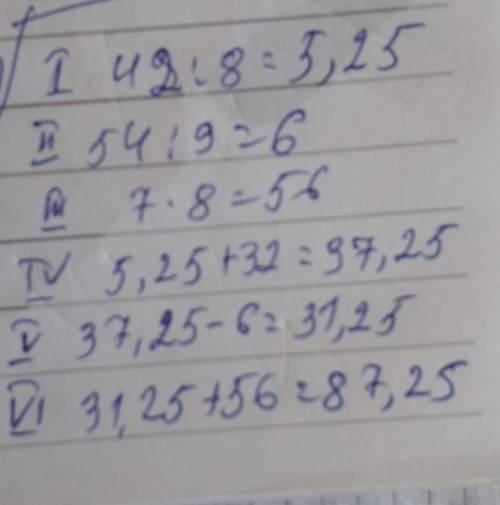 I 42:8=5,25
II 54:9=6
III 7·8=56
IV 5,25+32=37,25
V 37,25-6=31,25
VI 31,25+56=87,25